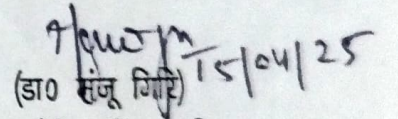 15/04/25
(डा० मंजू गिरि)